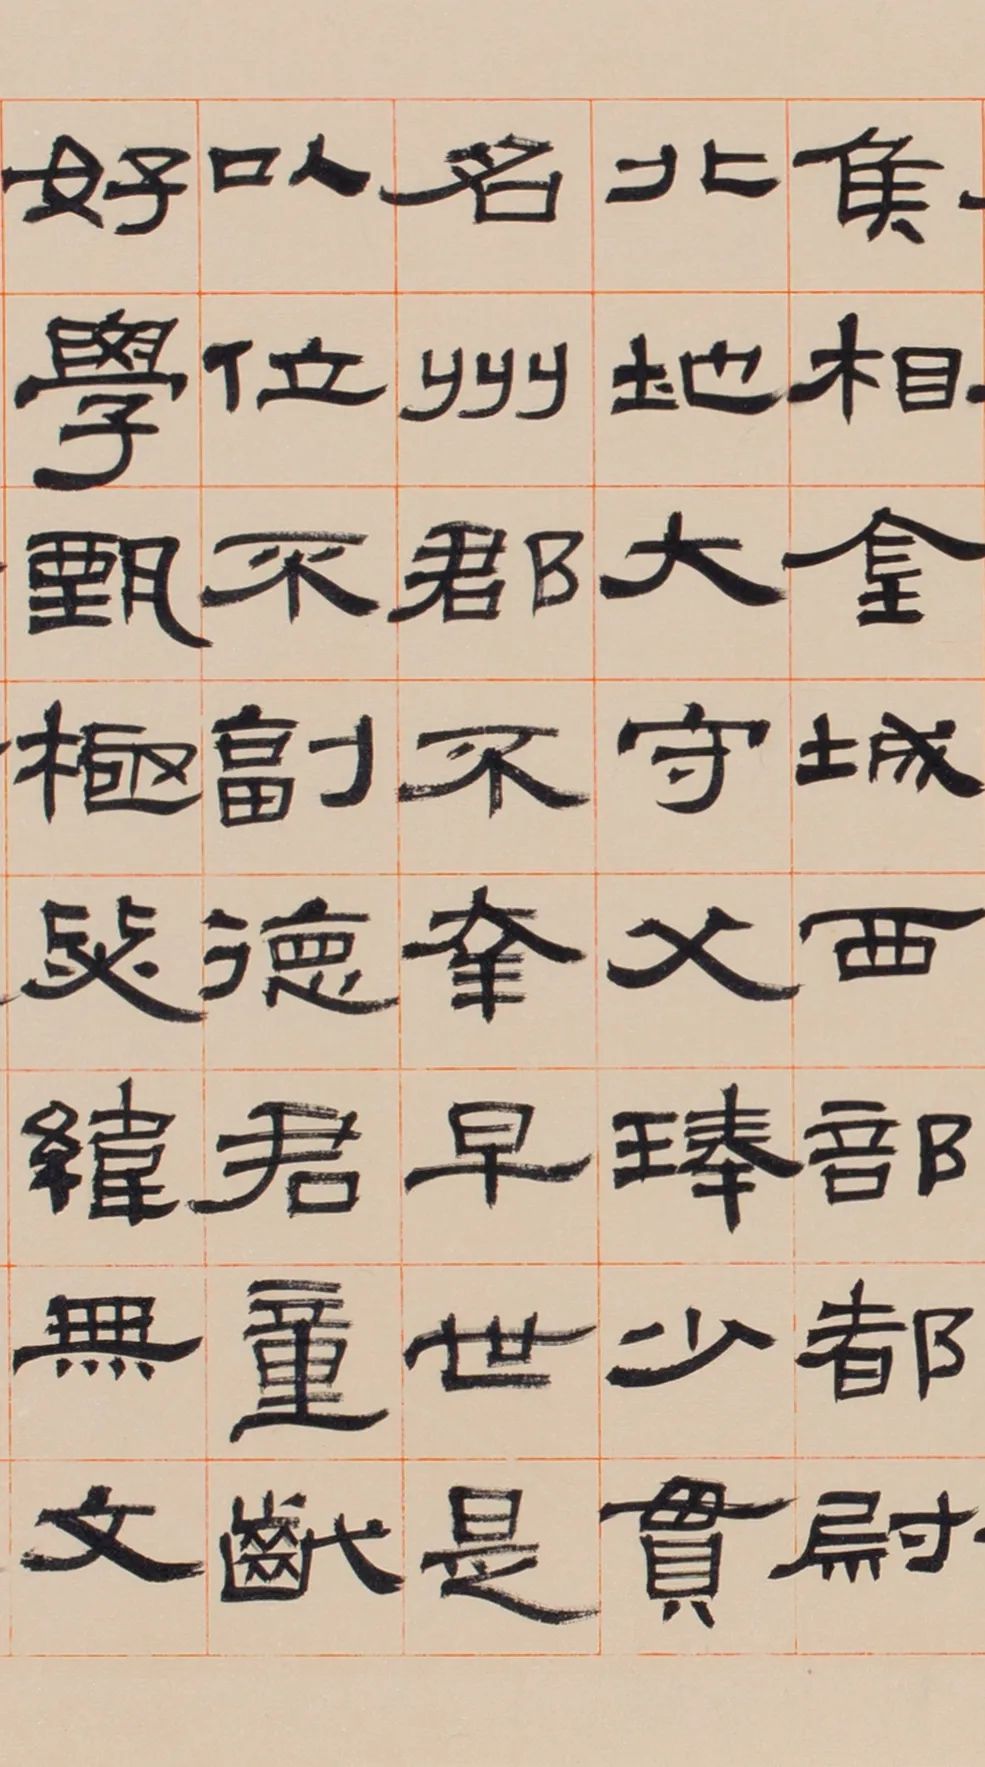 侯相金城西部都尉
北地大守父琫少貫
名州郡不幸早世是
以位不副德君童齔
好學甄極毖緯無文